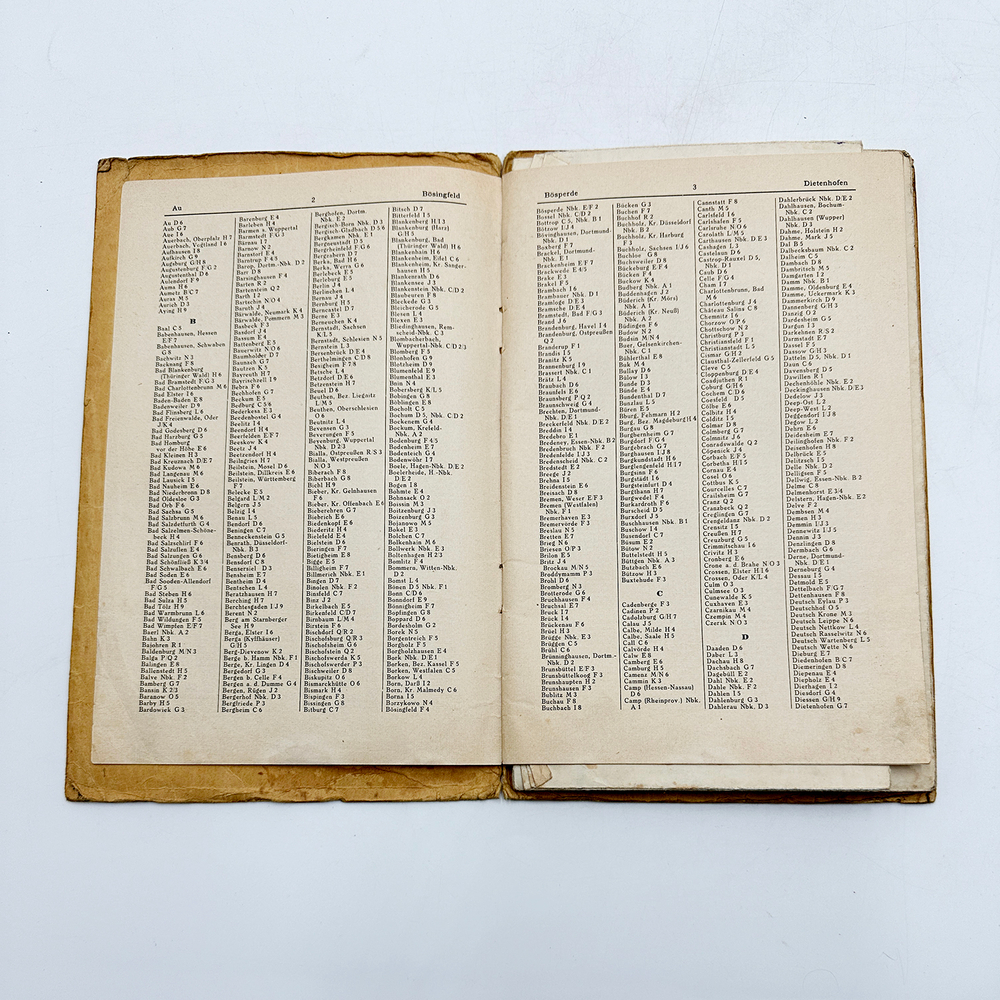 Au
2
Bösingfeld
Au D 6
Aub G 7
Aue I 6
Auerbach, Oberpfalz H 7
Auerbach, Vogtland I 6
Aufhausen I 8
Aufkirch G 9
Augsburg G/H 8
Augustenburg F/G 2
Augustenthal D 6
Aulendorf F 9
Auma H 6
Aumetz B C 7
Auras M 5
Aurich D 3
Aying H 9
B
Baal C 5
Babenhausen, Hessen
E/F 7
Babenhausen, Schwaben
G 8
Bachwitz N 3
Backnang F 8
Bad Blankenburg
(Thüringer Wald) H 6
Bad Bramstedt F/G 3
Bad Charlottenbrunn M 6
Bad Elster I 6
Baden-Baden E 8
Badenweiler D 9
Bad Flinsberg L 6
Bad Freienwalde, Oder
J/K 4
Bad Godesberg D 6
Bad Harzburg G 5
Bad Homburg
vor der Höhe E 6
Bad Kleinen H 3
Bad Kreuznach D/E 7
Bad Kudowa M 6
Bad Langenau M 6
Bad Lausick I 5
Bad Nauheim E 6
Bad Niederbronn D 8
Bad Oldesloe G 3
Bad Orb F 6
Bad Sachsa G 5
Bad Salzbrunn M 6
Bad Salzdetfurth G 4
Bad Salzelmen-Schöne-
beck H 4
Bad Salzschlirf F 6
Bad Salzuflen E 4
Bad Salzungen G 6
Bad Schönfließ K 3/4
Bad Schwalbach E 6
Bad Soden E 6
Bad Sooden-Allendorf
F G 5
Bad Steben H 6
Bad Sulza H 5
Bad Tölz H 9
Bad Warmbrunn L 6
Bad Wildungen F 5
Bad Wimpfen E/F 7
Baerl Nbk. A 2
Bahn K 3
Bajohren R 1
Baldenburg M/N 3
Balga P Q 2
Balingen E 8
Ballenstedt H 5
Balve Nbk. F 2
Bamberg G 7
Bansin K 2/3
Baranow O 5
Barby H 5
Bardowiek G 3
Barenburg E 4
Barleben H 4
Barmen s. Wuppertal
Barmstedt F/G 3
Bärnau I 7
Barnow N 2
Barnstorf E 4
Barntrup F 4/5
Barop, Dortm.-Nbk. D 2
Barr D 8
Barsinghausen F 4
Barten R 2
Bartenstein Q 2
Barth I 2
Bartschin N/O 4
Baruth J 4
Bärwalde, Neumark K 4
Bärwalde, Pommern M 3
Basbeck F 3
Basdorf J 4
Bassum E 4
Battenberg E 5
Bauerwitz N/O 6
Baumholder D 7
Baunach G 7
Bautzen K 5
Bayreuth H 7
Bayrischzell I 9
Bebra F 6
Bechhofen G 7
Beckum E 5
Bedburg C 5/6
Bederkesa E 3
Beedenbostel G 4
Beelitz I 4
Beendorf H 4
Beerfelden E/F 7
Beeskow K 4
Beetz J 4
Beetzendorf H 4
Beilngries H 7
Beilstein, Mosel D 6
Beilstein, Dillkreis E 6
Beilstein, Württemberg
F 7
Belecke E 5
Belgard L/M 2
Belgern J 5
Belzig I 4
Benau L 5
Bendorf D 6
Beningen C 7
Benneckenstein G 5
Benrath, Düsseldorf-
Nbk. B 3
Bensberg D 6
Bensdorf C 8
Bensersiel D 3
Bensheim E 7
Bentheim D 4
Bentschen L 4
Beratzhausen H 7
Berching H 7
Berchtesgaden I J 9
Berent N 2
Berg am Starnberger
See H 9
Berga, Elster I 6
Berga (Kyffhäuser)
G/H 5
Berg-Dievenow K 2
Berge b. Hamm Nbk. F 1
Berge, Kr. Lingen D 4
Bergedorf G 3
Bergen b. Celle F 4
Bergen a.d. Dumme G 4
Bergen, Rügen J 2
Bergerhof Nbk. D 3
Bergfriede P 3
Bergheim C 6
Berghofen, Dortm.
Nbk. E 2
Bergisch-Born Nbk. D 3
Bergisch-Gladbach D 5 6
Bergkamen Nbk. E 1
Bergneustadt D 5
Bergrheinfeld F/G 6
Bergzabern D 7
Berka, Bad H 6
Berka, Werra G 6
Berlebeck E 5
Berleburg E 5
Berlin J 4
Berlinchen L 4
Bernau J 4
Bernburg H 5
Berncastel D 7
Berne E 3
Berneuchen K 4
Bernstadt, Sachsen
K/L 5
Bernstadt, Schlesien N 5
Bernstein L 3
Bersenbrück D/E 4
Berthelmingen C/D 8
Besigheim F 7/8
Betsche L 4
Betzdorf D/E 6
Betzenstein H 7
Beuel D 6
Beuthen, Bez. Liegnitz
L/M 5
Beuthen, Oberschlesien
O 6
Beutnitz L 4
Bevensen G 3
Beverungen F 5
Beyenburg, Wuppertal
Nbk. D 2/3
Bialla, Ostpreußen R/S 3
Bialla, Westpreußen
N/O 3
Biberach F 8
Biberbach G 8
Bichl H 9
Bieber, Kr. Gelnhausen
F 6
Bieber, Kr. Offenbach E 6
Bieberehren G 7
Biebrich E 6
Biedenkopf E 6
Biederitz H 4
Bielefeld E 4
Bielstein D 6
Bieringen F 7
Bietigheim E 8
Bigge E 5
Billigheim F 7
Billmerich Nbk. E 1
Bingen D 7
Binolen Nbk. F 2
Binsfeld C 7
Binz J 2
Birkelbach E 5
Birkenfeld C/D 7
Birnbaum L/M 4
Birstein F 6
Bischdorf Q/R 2
Bischofsburg Q/R 3
Bischofsheim G 6
Bischofstein Q 2
Bischofswerda K 5
Bischofswerder P 3
Bischweiler D 8
Biskupitz O 6
Bismarckhütte O 6
Bismark H 4
Bispingen F 3
Bissingen G 8
Bitburg C 7
Bitsch D 7
Bitterfeld I 5
Blankenberg H I 3
Blankenburg (Harz)
G/H 5
Blankenburg, Bad
(Thüringer Wald) H 6
Blankenhain H 6
Blankenheim, Eifel C 6
Blankenheim, Kr. Sanger-
hausen H 5
Blankenrath D 6
Blankensee J 3
Blankenstein Nbk. C/D 2
Blaubeuren F 8
Bleckede G 3
Bleicherode G 5
Blesen L 4
Blexen E 3
Bliedinghausen, Rem-
scheid-Nbk. C 3
Blombacherbach,
Wuppertal-Nbk. C/D 2/3
Blomberg F 5
Blonhofen G 9
Blotzheim D 9
Blumenfeld E 9
Blumenthal E 3
Bnin N 4
Bobersberg K/L 5
Bobingen G 8
Böblingen E 8
Bocholt C 5
Bochum D 5, Nbk. C/D 2
Bockenem G 4
Bockum, Krefeld-
Nbk. A 2
Bodenburg F 4/5
Bodenheim E 7
Bodenteich G 4
Bodenwöhr I 7
Boele, Hagen-Nbk. D/E 2
Boelerheide, H.-Nbk.
D/E 2
Bogen I 8
Bohmte E 4
Bohnsack O 2
Boissin M 3
Boitzenburg J 3
Boizenburg G 3
Bojanowo M 5
Bokel E 3
Bolchen C 7
Bolkenhain M 6
Bollwerk Nbk. E 3
Boltenhagen H 2/3
Bomlitz F 4
Bommern, Witten-Nbk.
D 2
Bomst L 4
Bönen D 5 Nbk. F 1
Bonn C/D 6
Bonndorf E 9
Bönnigheim F 7
Bopfingen G 8
Boppard D 6
Bordesholm G 2
Borek N 5
Borgentreich F 5
Borgholz F 5
Borgholzhausen E 4
Bork Nbk. D/E 1
Borken, Bez. Kassel F 5
Borken, Westfalen C 5
Borkow L 4
Born, Darß I 2
Born, Kr. Malmedy C 6
Borna I 5
Borzykowo N 4
Bösingfeld F 4
Bösperde
3
Dietenhofen
Bösperde Nbk. E/F 2
Bossel Nbk. C/D 2
Bottrop C 5, Nbk. B 1
Bötzow I/J 4
Bövinghausen, Dortmund-
Nbk. D 1
Boxberg F 7
Brackel, Dortmund-
Nbk. E 1
Brackenheim E/F 7
Brackwede E 4/5
Brake E 3
Brakel F 5
Brambach I 6
Brambauer Nbk. D 1
Bramloge D/E 3
Bramsche D/E 4
Bramstedt, Bad F/G 3
Brand J 6
Brandenburg, Havel I 4
Brandenburg, Ostpreußen
Q 2
Branderup F 1
Brandis I 5
Branitz K 5
Brannenburg I 9
Brassert Nbk. C 1
Brätz L 4
Braubach D 6
Braunfels E 6
Braunsberg P Q 2
Braunschweig G 4
Brechten, Dortmund-
Nbk. D/E 1
Breckerfeld Nbk. D/E 2
Breddin I 4
Bredebro E 1
Bredeney, Essen-Nbk. B 2
Bredenbruch Nbk. F 2
Bredenfelde I/J 3
Bredenscheid Nbk. C 2
Bredstedt E 2
Breege J 2
Brehna I 5
Breidenstein E 6
Breisach D 8
Bremen, Weser E/F 3
Bremen (Westfalen)
Nbk. F 1
Bremerhaven E 3
Bremervörde F 3
Breslau N 5
Bretten E 7
Brieg N 6
Briesen O/P 3
Brilon E 5
Britz J 4
Brockau M/N 5
Broddymamm P 3
Brohl D 6
Bromberg N 3
Brotterode G 6
Bruchhausen F 4
Bruchsal E 7
Bruck I 7
Brück I 4
Brückenau F 6
Bruel H 3
Brügge Nbk. E 3
Brüggen C 5
Brühl C 6
Brünninghausen, Dortm.-
Nbk. D 2
Brunsbüttel E/F 3
Brunsbüttelkoog F 3
Brunshaupten H 2
Brunshausen F 3
Bublitz M 3
Buchau F 8
Buchbach I 8
Bücken G 3
Buchen F 7
Buchhof R 2
Buchholz, Kr. Düsseldorf
Nbk. B 2
Buchholz, Kr. Harburg
F 3
Buchholz, Sachsen I/J 6
Buchloe G 8
Buchsweiler D 8
Bückeburg E/F 4
Bücken F 4
Buckow K 4
Budberg Nbk. A 1
Buddenhagen J 2
Büderich (Kr. Mörs)
Nbk. A 1
Büderich (Kr. Neuß)
Nbk. A 2
Büdingen F 6
Budow N 2
Budsin M/N 4
Buer, Gelsenkirchen-
Nbk. C 1
Bühlerthal E 8
Buk M 4
Bullay D 6
Bülow I 3
Bunde D 3
Bünde E 4
Bundenthal D 7
Bunzlau L 5
Büren E 5
Burg, Fehmarn H 2
Burg, Bez. Magdeburg H 4
Burgau G 8
Burgbernheim G 7
Burgdorf F/G 4
Burgebrach G 7
Burghausen I J 8
Burgkundstadt H 6
Burglengenfeld H I 7
Burgsinn F 6
Burgstädt I 6
Burgsteinfurt D 4
Burgthann H 7
Burgwedel F 4
Burkardroth F 6
Burscheid D 5
Bursdorf J 5
Buschhausen Nbk. B 1
Buschow I 4
Busendorf C 7
Büsum E 2
Bütow N 2
Buttelstedt H 5
Büttgen Nbk. A 3
Butzbach E 6
Bützow H 3
Buxtehude F 3
C
Cadenberge F 3
Cadinen P 2
Cadolzburg G/H 7
Calau J 5
Calbe, Milde H 4
Calbe, Saale H 5
Call C 6
Calvörde H 4
Calw E 8
Camberg E 6
Camburg H 5
Camenz M/N 6
Cammin K 3
Camp (Hessen-Nassau)
D 6
Camp (Rheinprov.) Nbk.
A 1
Cannstatt F 8
Canth M 5
Carlsfeld I 6
Carlshafen F 5
Carlsruhe N/O 6
Carolath L/M 5
Carthausen Nbk. D/E 3
Cashagen L 3
Castelaun D 6
Castrop-Rauxel D 5,
Nbk. D 1
Caub D 6
Celle F/G 4
Cham I 7
Charlottenbrunn, Bad
M 6
Charlottenburg J 4
Château Salins C 8
Chemnitz I 6
Chorzow O/P 6
Chottschow N 2
Christburg P 3
Christiansfeld F 1
Christianstadt L 5
Cismar G/H 2
Clausthal-Zellerfeld G 5
Cleve C 5
Cloppenburg D/E 4
Coadjuthen R 1
Coburg G/H 6
Cochem C/D 6
Coesfeld D 5
Cölbe E 6
Colbitz H 4
Colditz I 5
Colmar D 8
Colmberg G 7
Colmnitz J 6
Conradswalde Q 2
Cöpenick J 4
Corbach E/F 5
Corbetha H/I 5
Cornau E 4
Cosel O 6
Cottbus K 5
Courcelles C 7
Crailsheim G 7
Cranz Q 2
Cranzbeck Q 2
Creglingen G 7
Crengeldanz Nbk. D 2
Crensitz I 5
Creußen H 7
Creuzburg G 5
Crimmitschau I 6
Crivitz H 3
Cronberg E 6
Crone a. d. Brahe N/O 3
Crossen, Elster H I 6
Crossen, Oder K/L 4
Culm O 3
Culmsee O 3
Cunewalde K 5
Cuxhaven E 3
Czarnikau M 4
Czempin M 4
Czersk N/O 3
D
Daaden D 6
Daber L 3
Dachau H 8
Dachsbach G 7
Dagebüll E 2
Dahl Nbk. E 2
Dahle Nbk. F 2
Dahlen I 5
Dahlenburg G 3
Dahlerau Nbk. D 3
Dahlerbrück Nbk. D/E 2
Dahlhausen, Bochum-
Nbk. C 2
Dahlhausen (Wupper)
Nbk. D 3
Dahme, Holstein H 2
Dahme, Mark J 5
Dal B 5
Dalbecksbaum Nbk. C 2
Dalheim C 5
Dambach D 8
Dambritsch M 5
Damgarten I 2
Damm Nbk. B 1
Damme, Oldenburg E 4
Damme, Uckermark K 3
Dammerkirch D 9
Dannenberg G/H 3
Danzig O 2
Dardesheim G 5
Dargun I 3
Darkehnen R/S 2
Darmstadt E 7
Dassel F 5
Dassow G/H 3
Datteln D 5, Nbk. D 1
Daun C 6
Davensberg D 5
Dawillen R 1
Dechenhöhle Nbk. E 2
Deckinghausen Nbk. D/E 3
Dedelow J 3
Deep-Ost L 2
Deep-West L 2
Deggendorf I J 8
Degow L 2
Dehrn E 6
Deidesheim E 7
Deilinghofen Nbk. F 2
Deisenhofen H 8
Delbrück E 5
Delitzsch I 5
Delle Nbk. D 2
Delligsen F 5
Dellwig, Essen-Nbk. B 2
Delme C 8
Delmenhorst E 3/4
Delstern, Hagen-Nbk. E 2
Delve F 2
Dembsen M 4
Demen H 3
Demmin I/J 3
Dennewitz I/J 5
Dennin J 3
Denzlingen D 8
Dermbach G 6
Derne, Dortmund-
Nbk. D/E 1
Derneburg G 4
Dessau I 5
Detmold E 5
Dettelbach F/G 7
Dettenhausen F 8
Deutsch Eylau P 3
Deutschhof O 5
Deutsch Krone M 3
Deutsch Leippe N 6
Deutsch Nettkow L 4
Deutsch Rasselwitz N 6
Deutsch Wartenberg L 5
Deutsch Wette N 6
Dieburg E 7
Diedenhofen B C 7
Diemeringen D 8
Diepenau E 4
Diepholz E 4
Dierhagen I 2
Diesdorf G 4
Diessen G/H 9
Dietenhofen G 7